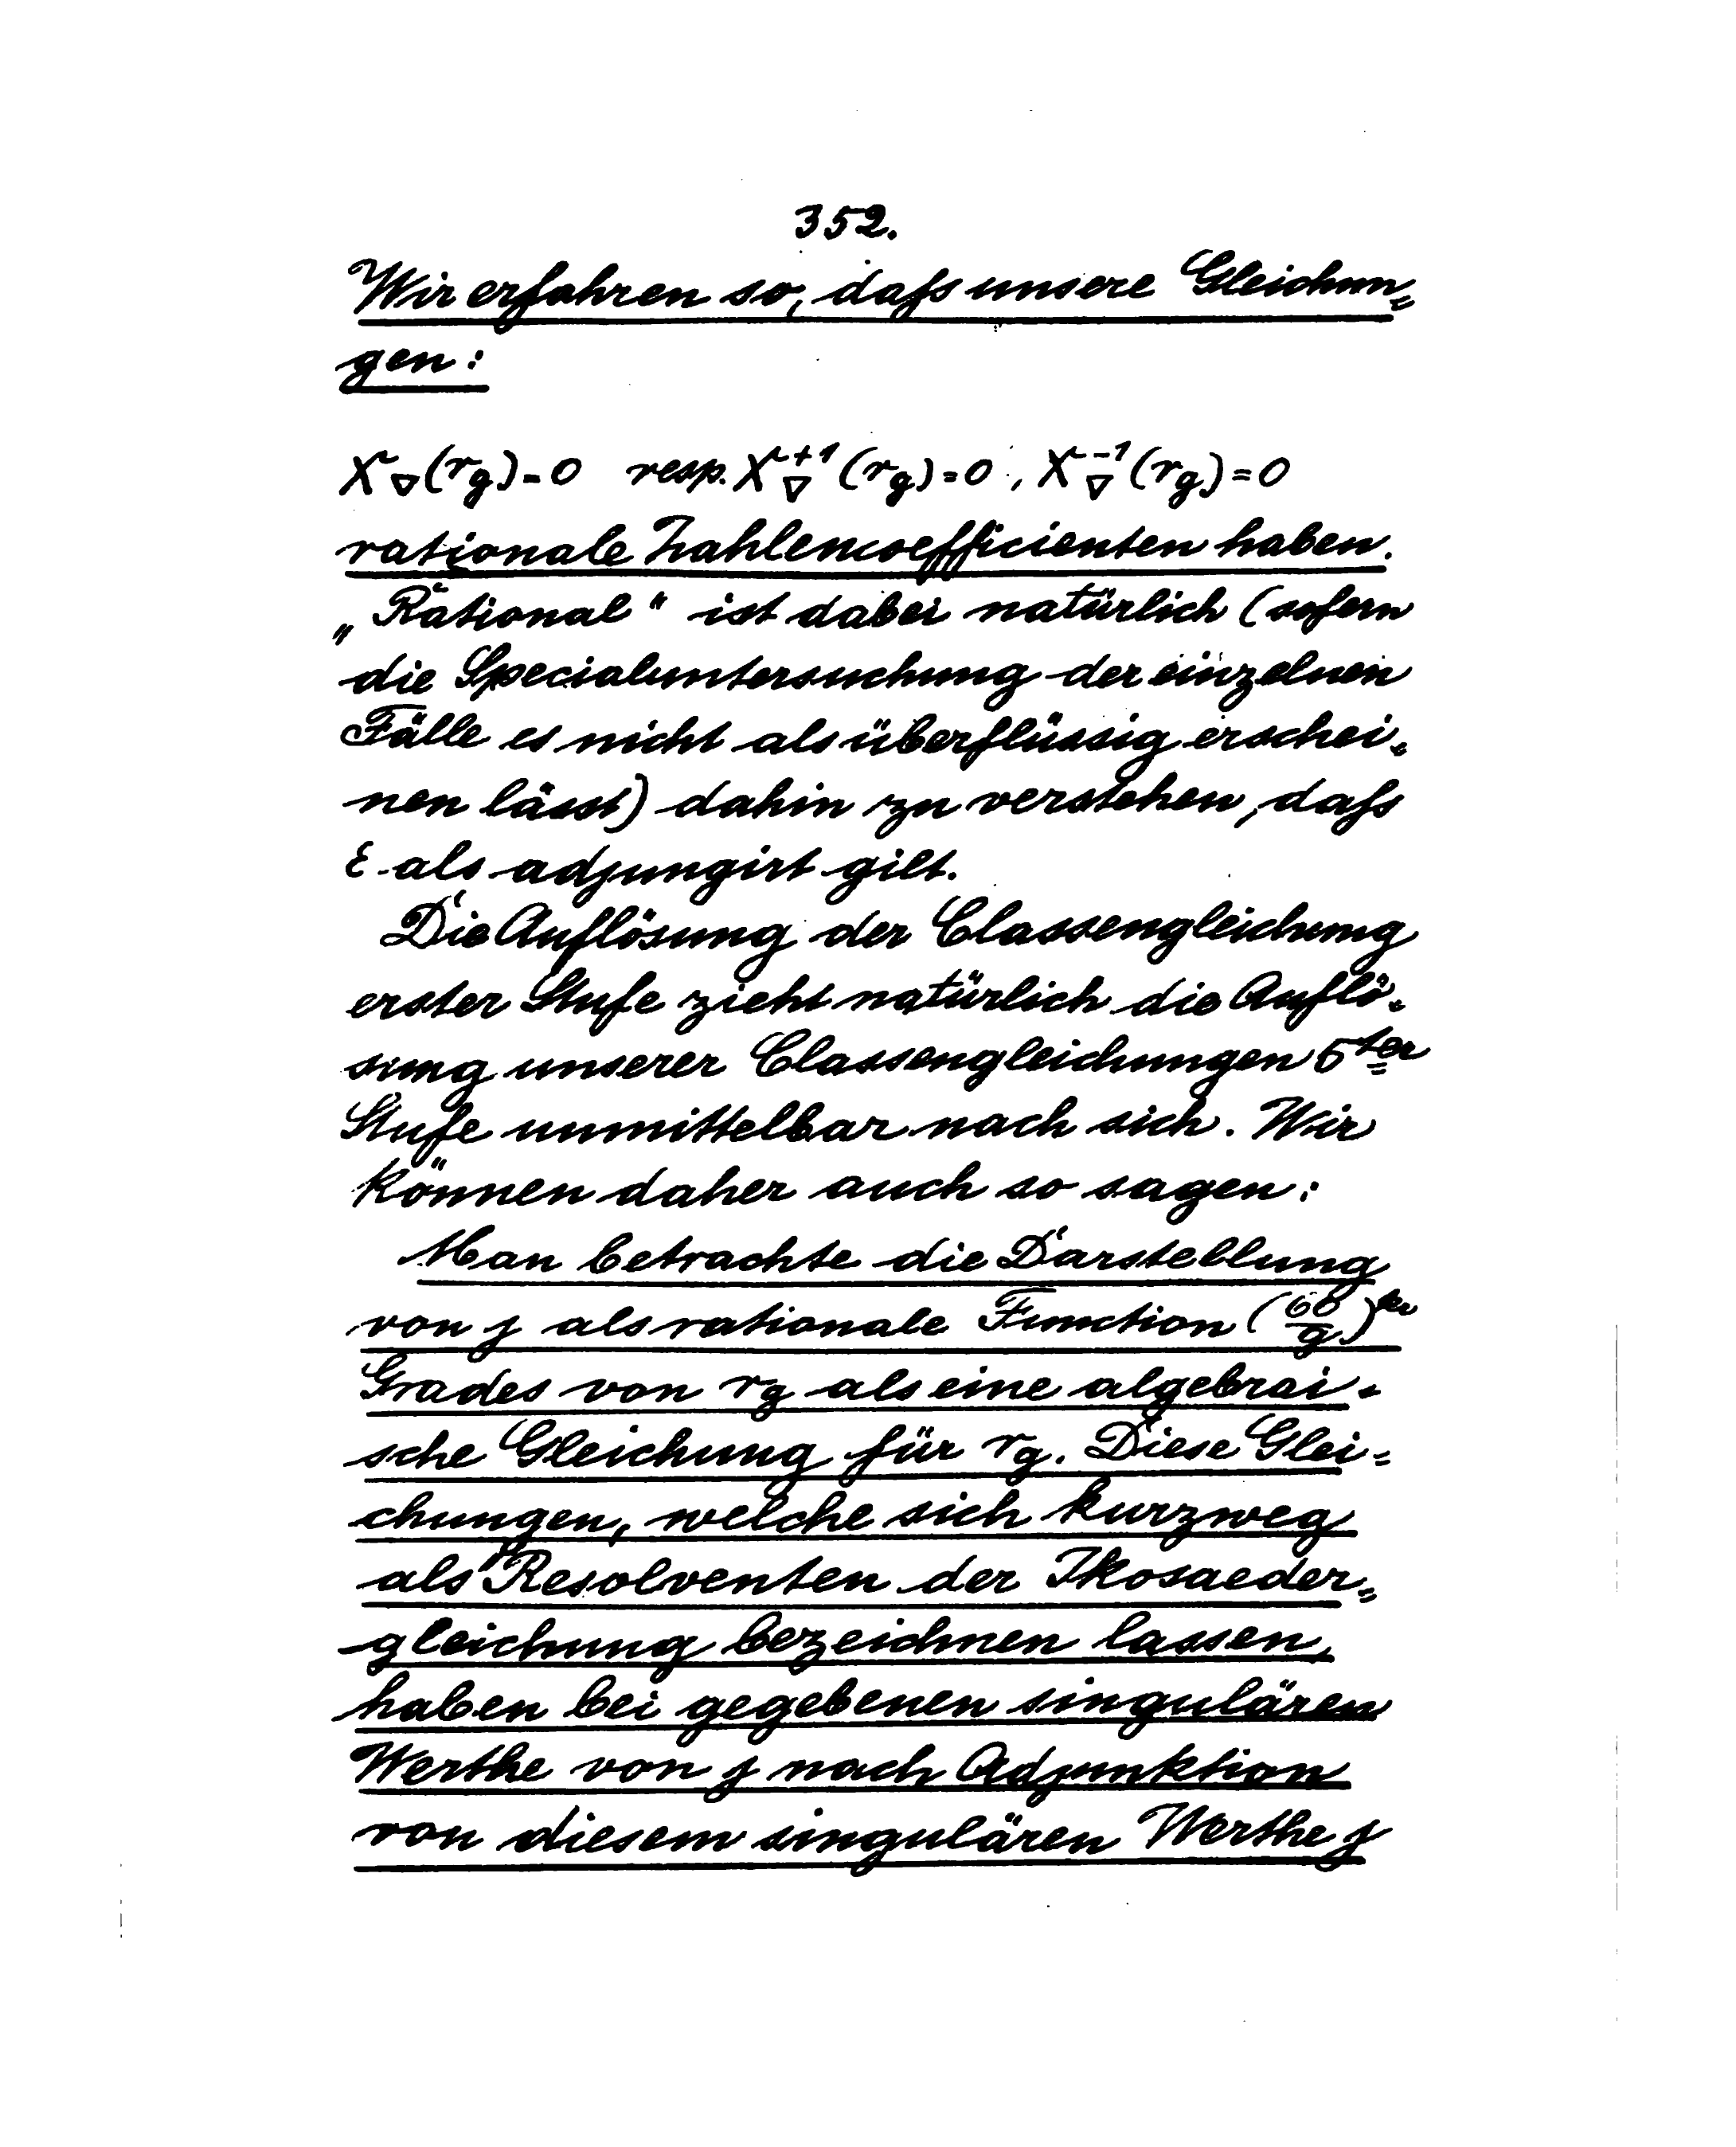 352.
Wir erfahren so, daſs unsere Gleichun-
gen:
X_∇(r_g)=0 resp. X_∇^{+1}(r_g)=0, X_∇^{-1}(r_g)=0
rationale Zahlencoefficienten haben.
„Rational“ ist dabei natürlich (sofern
die Specialuntersuchung der einzelnen
Fälle es nicht als überflüssig erschei-
nen lässt) dahin zu verstehen, daſs
ε als adjungirt gilt.
Die Auflösung der Classengleichung
erster Stufe zieht natürlich die Auflö-
sung unserer Classengleichungen 5ter
Stufe unmittelbar nach sich. Wir
können daher auch so sagen:
Man betrachte die Darstellung
von j als rationale Function (60/g)ten
Grades von r_g als eine algebrai-
sche Gleichung für r_g. Diese Glei-
chungen, welche sich kurzweg
als Resolventen der Ikosaeder-
gleichung bezeichnen lassen,
haben bei gegebenen singulären
Werthe von j nach Adjunktion
von diesem singulären Werthe j